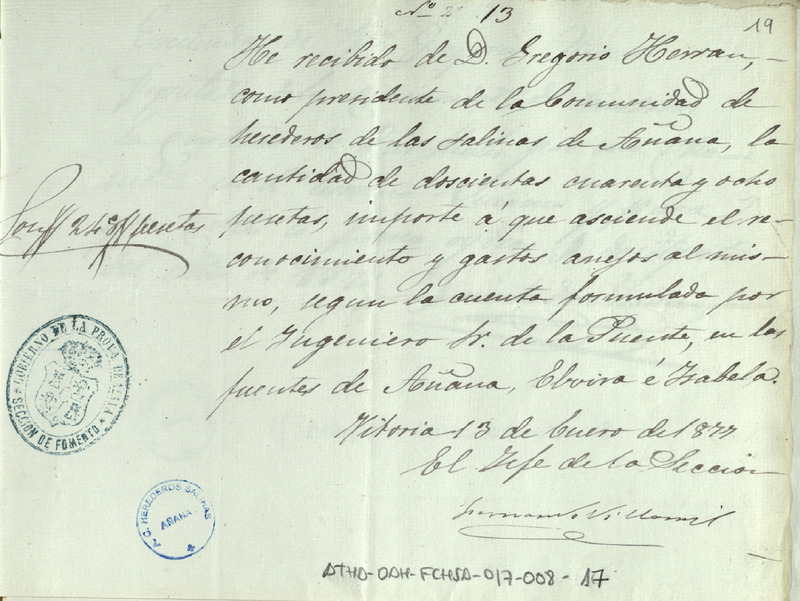 Nº 13
19
He recibido de D. Gregorio Herran,-
como presidente de la Comunidad de
herederos de las salinas de Añana, la
cantidad de doscientas cuarenta y ocho
pesetas, importe á que asciende el re-
conocimiento y gastos anejos al mis-
mo, segun la cuenta formulada por
el Ingeniero Sr. de la Puente, en las
fuentes de Añana, Elvira é Isabela.
Son 248 pesetas
Vitoria 13 de Enero de 1877
El Jefe de la Seccion
Fernando Villamil
GOBIERNO DE LA PROVA DE ALAVA
SECCION DE FOMENTO
C. HEREDEROS SALINAS
AÑANA
ATHA-DAH-FCHSA-017-008-17